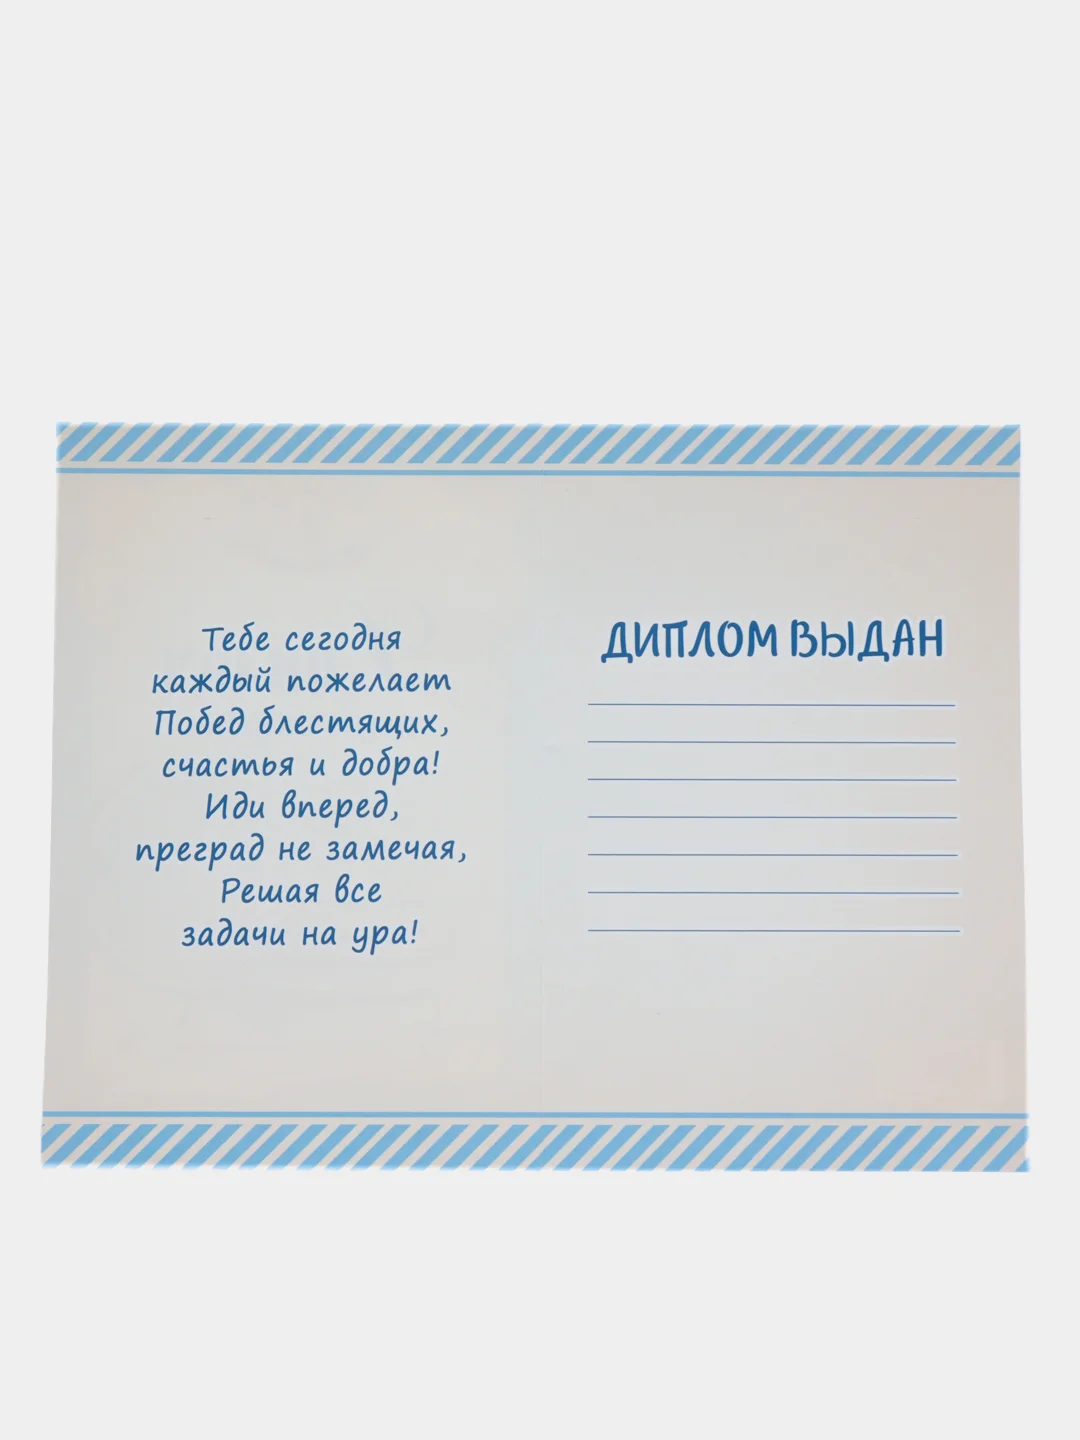 Тебе сегодня
каждый пожелает
Побед блестящих,
счастья и добра!
Иди вперед,
преград не замечая,
Решая все
задачи на ура!
ДИПЛОМ ВЫДАН